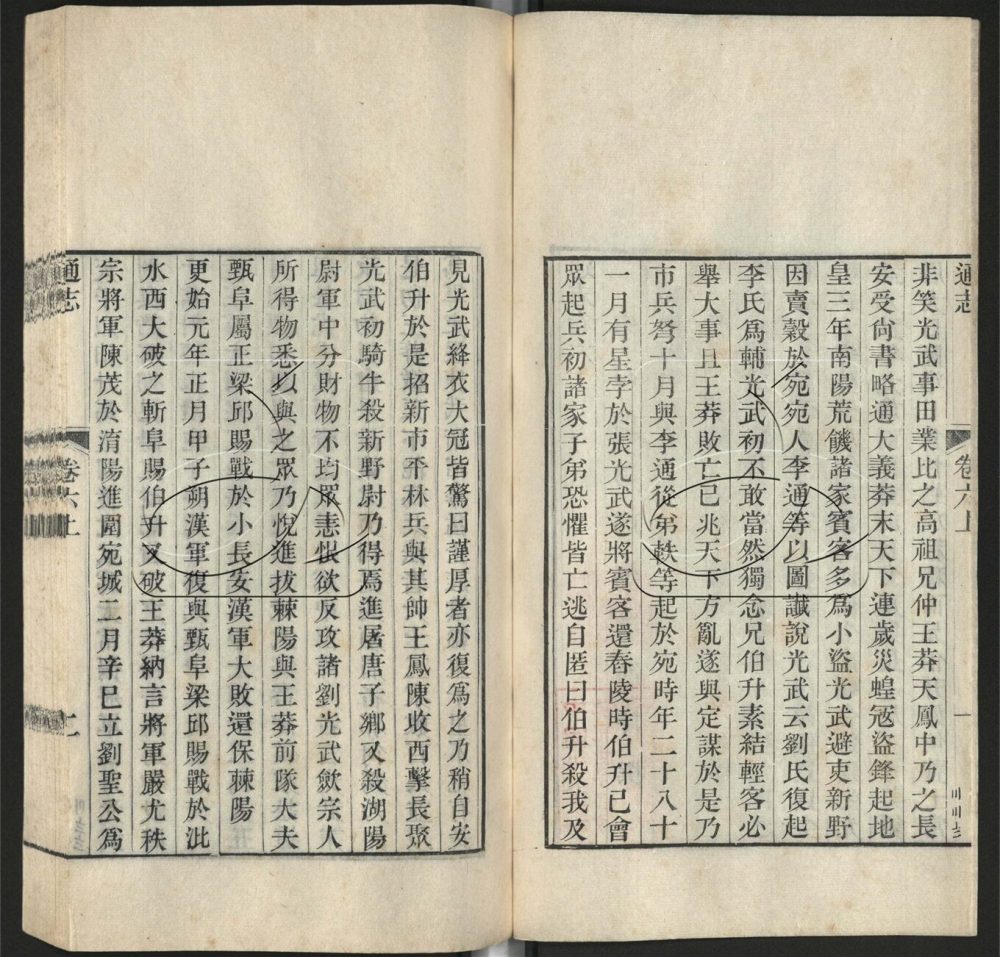 通志
卷六上
一
非笑光武事田業比之高祖兄仲王莽天鳳中乃之長
安受尚書略通大義莽末天下連歲災蝗寇盜鋒起地
皇三年南陽荒饑諸家賓客多爲小盜光武避吏新野
因賣穀於宛宛人李通等以圖讖說光武云劉氏復起
李氏爲輔光武初不敢當然獨念兄伯升素結輕客必
舉大事且王莽敗亡已兆天下方亂遂與定謀於是乃
市兵弩十月與李通從弟軼等起於宛時年二十八十
一月有星孛於張光武遂將賓客還舂陵時伯升已會
眾起兵初諸家子弟恐懼皆亡逃自匿曰伯升殺我及
見光武絳衣大冠皆驚曰謹厚者亦復爲之乃稍自安
伯升於是招新市平林兵與其帥王鳳陳收西擊長聚
光武初騎牛殺新野尉乃得馬進屠唐子鄉又殺湖陽
尉軍中分財物不均眾恚恨欲反攻諸劉光武斂宗人
所得物悉以與之眾乃悅進拔棘陽與王莽前隊大夫
甄阜屬正梁邱賜戰於小長安漢軍大敗還保棘陽
更始元年正月甲子朔漢軍復與甄阜梁邱賜戰於沘
水西大破之斬阜賜伯升又破王莽納言將軍嚴尤秩
宗將軍陳茂於淯陽進圍宛城二月辛巳立劉聖公爲
通志
卷六上
二